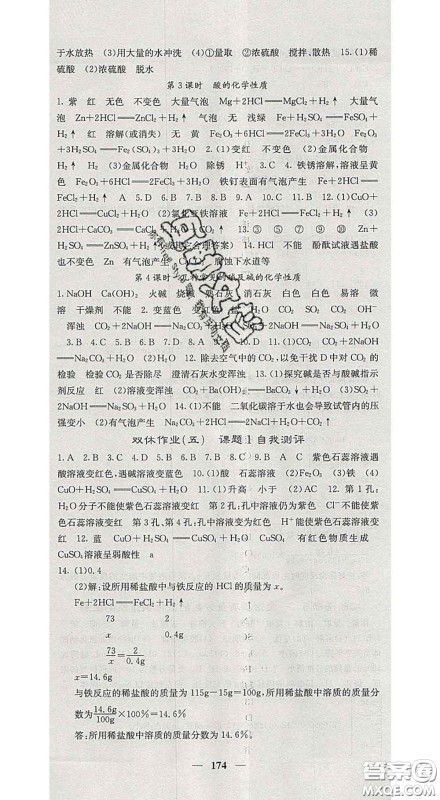 于水放热 (3)用大量的水冲洗 (4)①量取 ②浓硫酸 搅拌、散热 15.(1)稀
硫酸 (2)浓硫酸 脱水
第3课时 酸的化学性质
1. 紫 红 无色 不变色 大量气泡 Mg+2HCl══MgCl₂+H₂↑ 大量气
泡 Zn+2HCl══ZnCl₂+H₂↑ 气泡 无 浅绿 Fe+H₂SO₄══FeSO₄+
H₂↑ 红 溶解(或消失) 无 黄 Fe₂O₃+6HCl══2FeCl₃+3H₂O Fe₂
O₃+3H₂SO₄══Fe₂(SO₄)₃+3H₂O 2.(1)变红 不变色 (2)金属化合物
H₂ (3)金属化合物 H₂O 除锈 H⁺ 3.C 4. 铁锈溶解,溶液呈黄
色 Fe₂O₃+6HCl══2FeCl₃+3H₂O 铁钉表面有气泡产生 Fe+2HCl══
FeCl₂+H₂↑ 5.A 6.D 7.B 8.A 9.B 10.B 11.D 12.(1)CuO+
2HCl══CuCl₂+H₂O (2)氯化亚铁溶液 Fe+2HCl══FeCl₂+H₂↑
(3)HCl+CaCO₃ CaCl₂ CO₂↑ H₂O 13. ③ ⑤ ⑦ ⑨ ⑩
不能 酚酞试液遇盐酸
也不变色 Zn 有气泡产生 腐蚀下水道等
第4课时 及碱的化学性质
1. NaOH Ca(OH)₂ 火碱 烧碱 石灰 消石灰 白色 白色 易溶 微
溶 干燥剂 不能 2. 变蓝色 CO₂ SO₂
浑浊 CO₂+2NaOH══Na₂CO₃+H₂O
7.B 8.D 9.B 10.B 11.A
Na₂CO₃+H₂O 12. 除去空气中的CO₂,以免干扰D中对CO₂的
检验 检验CO₂是否除尽 澄清石灰水变浑浊 13.(1)探究碱是否与酸碱指示
剂反应 红 (2)溶液变浑浊 CO₂+Ba(OH)₂══BaCO₃↓+H₂O (3)SO₃+
2NaOH══Na₂SO₄+H₂O 14.(1)不能 二氧化碳溶于水也会导致试管内的压
强变小 (2)有气泡产生 Na₂CO₃+2HCl══2NaCl+H₂O+CO₂↑
双休作业(五) 课题1自我测评
1.A 2.B 3.C 4.D 5.A 6.B 7.B 8.B 9.C 紫色石蕊溶液遇
酸溶液变红色,遇碱溶液变蓝色 10.(1)酸 石蕊溶液 (2)Fe₂O₃ (3)铁 (4)
CuO+H₂SO₄══CuSO₄+H₂O 11.(1)升高 小于 (2)AC 12. 第1孔:
H₂O分子不能使紫色石蕊溶液变红,第2孔中溶液仍为紫色 Cl⁻不能使紫色
石蕊溶液变红 第3孔、第4孔中溶液均变为红色 H⁺能使紫色石蕊溶液变
红 13. 蓝 CuO+H₂SO₄══CuSO₄+H₂O 有红色物质生成
CuSO₄溶液呈弱酸性 a
14.(1)0.4
(2)解:设所用稀盐酸中与铁反应的HCl的质量为x。
Fe+2HCl══FeCl₂+H₂↑
73 2
x 0.4g
73/x=2/0.4g
x=14.6g
与铁反应的稀盐酸的质量为115g−15g=100g,所用稀盐酸中溶质的质量分
数为14.6g/100g×100%=14.6%。
答:所用稀盐酸中溶质的质量分数为14.6%。
174
答案圈
MXQE.COM